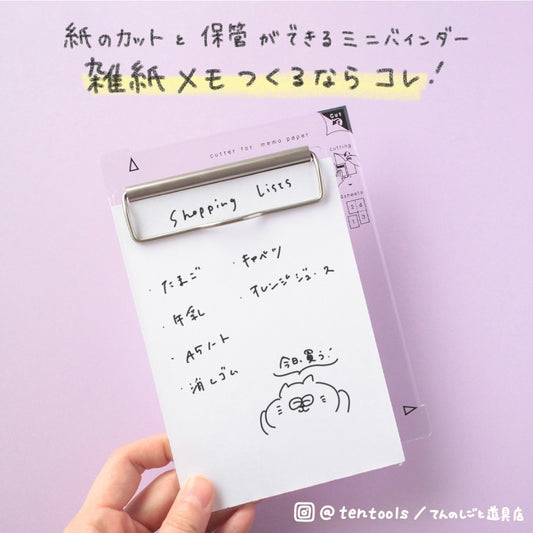 紙のカットと保管ができるミニバインダー
雑紙メモつくるならコレ!
cutter for memo paper
Cut
cutting
4sheets
2 4
1 3
Shopping Lists
・たまご
・牛乳
・A5ノート
・消しゴム
・キャベツ
・オレンジジュース
今日、買う!
@tentools/てんのしごと道具店